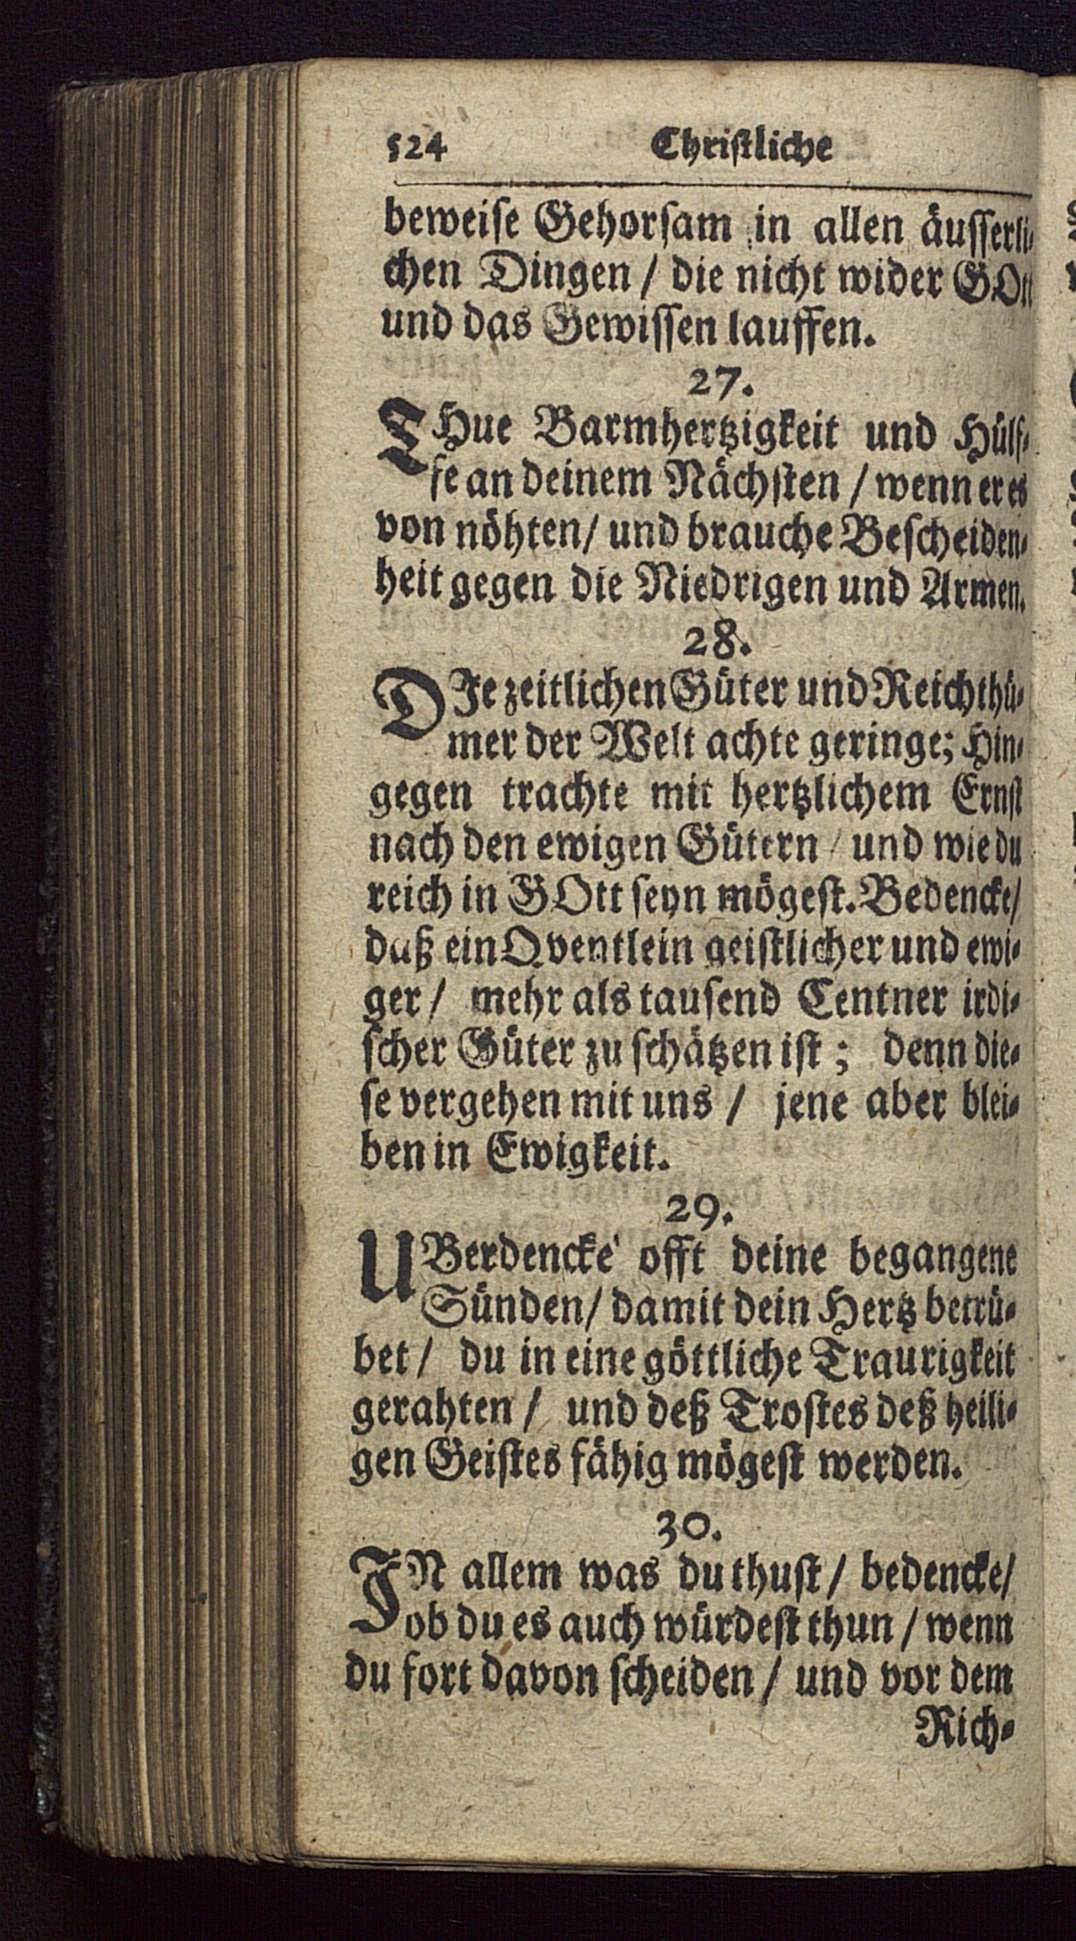 524 Christliche
beweise Gehorsam in allen äusserli-
chen Dingen / die nicht wider GOtt
und das Gewissen lauffen.
27.
THue Barmhertzigkeit und Hülf-
fe an deinem Nächsten / wenn er es
von nöhten / und brauche Bescheiden-
heit gegen die Niedrigen und Armen.
28.
DIe zeitlichen Güter und Reichthü-
mer der Welt achte geringe; Hin-
gegen trachte mit hertzlichem Ernst
nach den ewigen Gütern / und wie du
reich in GOtt seyn mögest. Bedencke /
daß ein Qventlein geistlicher und ewi-
ger / mehr als tausend Centner irdi-
scher Güter zu schätzen ist ; denn die-
se vergehen mit uns / jene aber blei-
ben in Ewigkeit.
29.
UBerdencke offt deine begangene
Sünden / damit dein Hertz betrü-
bet / du in eine göttliche Traurigkeit
gerahten / und deß Trostes deß heili-
gen Geistes fähig mögest werden.
30.
IN allem was du thust / bedencke /
ob du es auch würdest thun / wenn
du fort davon scheiden / und vor dem
Rich-